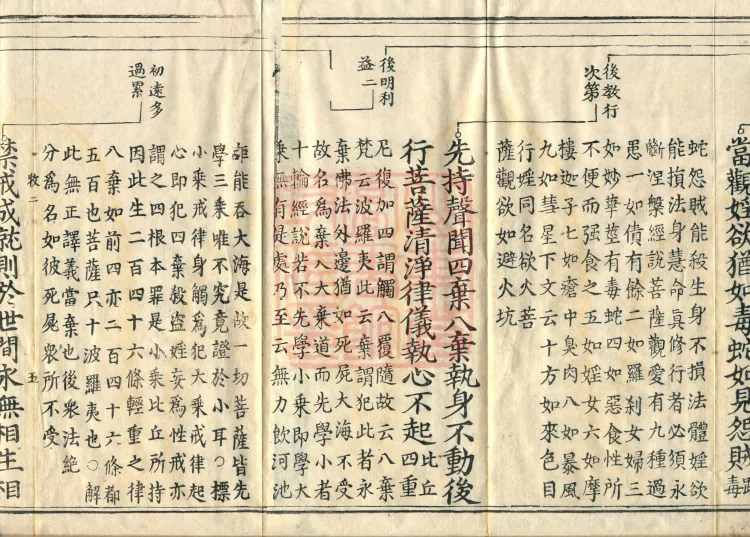 當觀婬欲猶如毒蛇如見怨賊
毒
後教行
次第
蛇怨賊能殺生身不損法體婬欲
能損法身慧命眞修行者必須永
斷涅槃經說菩薩觀愛有九種過
患一如債有餘二如羅刹女婦三
如妙華莖有毒蛇四如惡食性所
不便而强食之五如婬女六如摩
樓迦子七如瘡中臭肉八如暴風
九如彗星下文云十方如來色目
行婬同名欲火菩
薩觀欲如避火坑
後明利
益二
先持聲聞四棄八棄執身不動後
行菩薩清淨律儀執心不起
比丘
四重
尼復加四謂觸八覆隨故云八棄
梵云波羅夷此云棄謂犯此者永
棄佛法外邊猶如死屍大海不受
故名爲棄入大乘道而先學小者
十輪經說若不先學小乘即學大
乘無有是處乃至云無力飲河池
詎能吞大海是故一切菩薩皆先
學三乘唯不究竟證於小耳○標
小乘戒律身觸爲犯大乘戒律起
心即犯四棄殺盜婬妄爲性戒亦
謂之四根本罪是小乘比丘所持
因此生二百四十六條輕重之律
八棄如前四亦二百四十六條都
五百也菩薩只十波羅夷也○解
此無正譯義當棄也後衆法絶
分爲名如彼死屍衆所不受
初遠多
過累
牧二 五
禁戒成就則於世間永無相生相